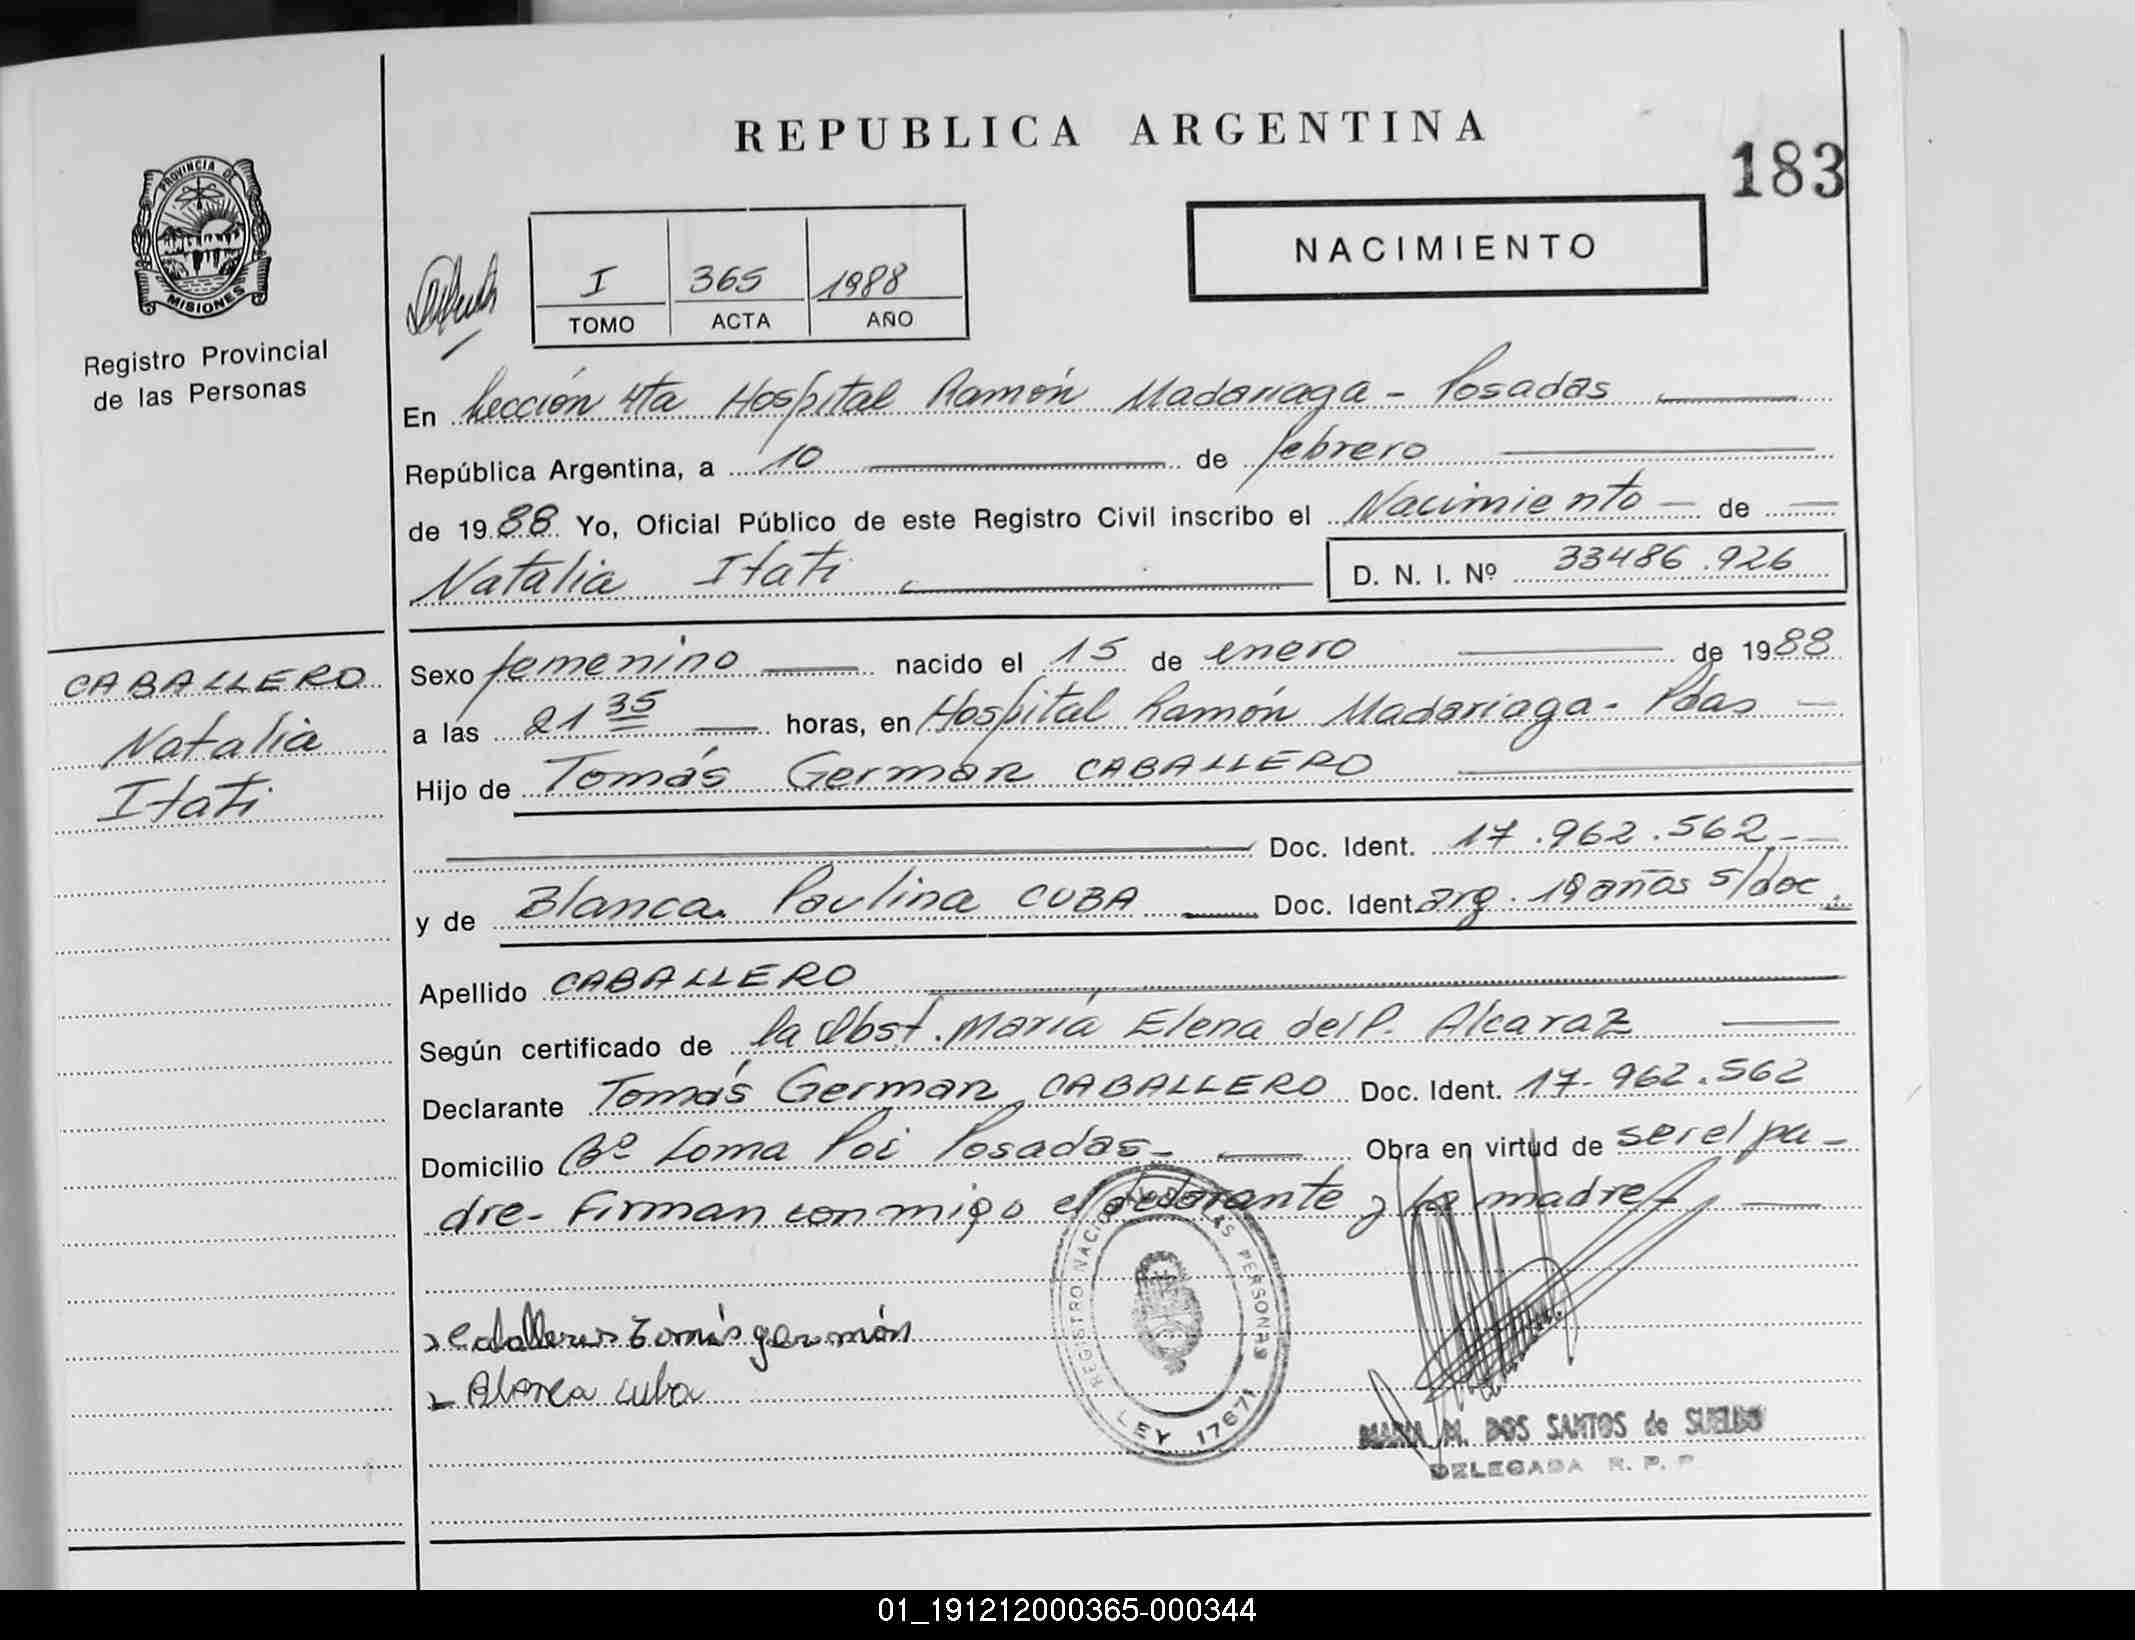 REPUBLICA ARGENTINA
183
PROVINCIA DE
MISIONES
Registro Provincial
de las Personas
I 365 1988
TOMO ACTA AÑO
NACIMIENTO
En Sección 4ta Hospital Ramón Madariaga - Posadas
República Argentina, a 10 de febrero
de 1988 Yo, Oficial Público de este Registro Civil inscribo el Nacimiento de
Natalia Itati
D. N. I. Nº 33486.926
CABALLERO
Natalia
Itati
Sexo femenino nacido el 15 de enero de 1988
a las 21 35 horas, en Hospital Ramón Madariaga - Pdas
Hijo de Tomás German CABALLERO
Doc. Ident. 17.962.562
y de Blanca Paulina CUBA Doc. Ident. arg. 19 años s/doc.
Apellido CABALLERO
Según certificado de la Obst. María Elena del P. Alcaraz
Declarante Tomás German CABALLERO Doc. Ident. 17.962.562
Domicilio Bº Loma Poi Posadas - Obra en virtud de ser el pa-
dre - Firman conmigo el declarante y la madre
Caballero Tomás germán
Blanca cuba
REGISTRO NACIONAL DE LAS PERSONAS
LEY 17671
MARIA M. DOS SANTOS de SUELDO
DELEGADA R. P. P
01_191212000365-000344